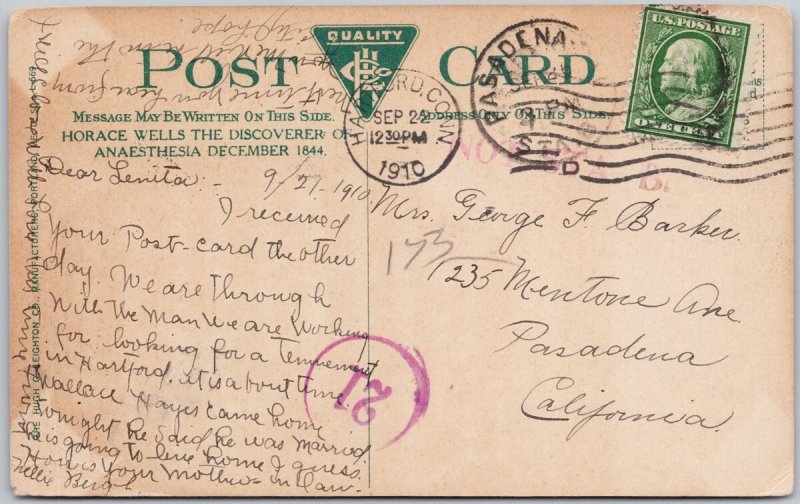 QUALITY
POST CARD
MESSAGE MAY BE WRITTEN ON THIS SIDE.
ADDRESS ONLY ON THIS SIDE.
HORACE WELLS THE DISCOVERER OF
ANAESTHESIA DECEMBER 1844.
HARTFORD CONN.
SEP 22
12 30 PM
1910
PASADENA
STA.
D
U.S. POSTAGE
ONE CENT
Dear Lenita
9/21-1910.
I received
Your Post-card the other
day. We are through
With the Man We are Working
for looking for a Tennement
in Hartford. it is about time.
Wallace Hayes came home
tonight he said he was married
he is going to leve home I guess.
How is your Mother in law.
Nellie
Mrs. George F. Barker
1235 Mentone Ave.
Pasadena
California.
173
21
THE HUGH C. LEIGHTON CO., MANUFACTURERS, PORTLAND, ME.